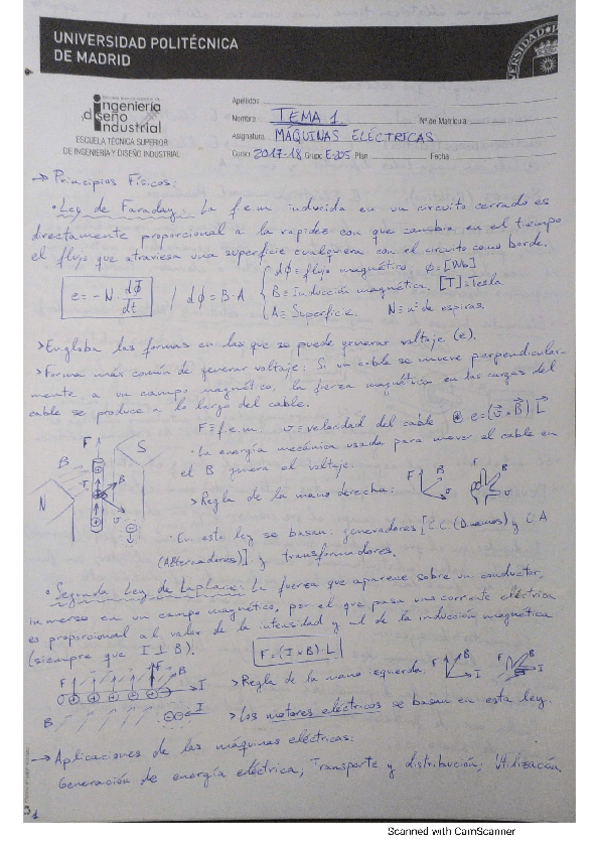 UNIVERSIDAD POLITÉCNICA
DE MADRID
ingeniería
diseño
industrial
ESCUELA TÉCNICA SUPERIOR
DE INGENIERÍA Y DISEÑO INDUSTRIAL
Apellidos
Nombre TEMA 1 Nº de Matrícula
Asignatura MÁQUINAS ELÉCTRICAS
Curso 2017-18 Grupo E-205 Plan Fecha
→ Principios Físicos:
• Ley de Faraday. La f.e.m inducida en un circuito cerrado es
directamente proporcional a la rapidez con que cambia en el tiempo
el flujo que atraviesa una superficie cualquiera con el circuito como borde.
e = -N · dΦ/dt / dϕ = B·A
dϕ = flujo magnético, ϕ = [Wb]
B = Inducción magnética. [T] = Tesla
A = Superficie. N = nº de espiras.
> Engloba las formas en las que se puede generar voltaje (e).
> Forma más común de generar voltaje: Si un cable se mueve perpendicular-
mente a un campo magnético, la fuerza magnética en las cargas del
cable se produce a lo largo del cable.
F ≡ f.e.m. v = velocidad del cable e = (v x B) L
• La energía mecánica usada para mover el cable en
el B genera el voltaje.
> Regla de la mano derecha:
F B v
N S
• En esta ley se basan: generadores [C.C. (Dinamos) y C.A
(Alternadores)] y transformadores.
• Segunda Ley de Laplace: La fuerza que aparece sobre un conductor,
inmerso en un campo magnético, por el que pasa una corriente eléctrica
es proporcional al valor de la intensidad y al de la inducción magnética
(siempre que I ⊥ B).
F = (I x B) · L
> Regla de la mano izquierda.
F B I
> Los motores eléctricos se basan en esta ley.
→ Aplicaciones de las máquinas eléctricas:
Generación de energía eléctrica; Transporte y distribución; Utilización
1
Scanned with CamScanner